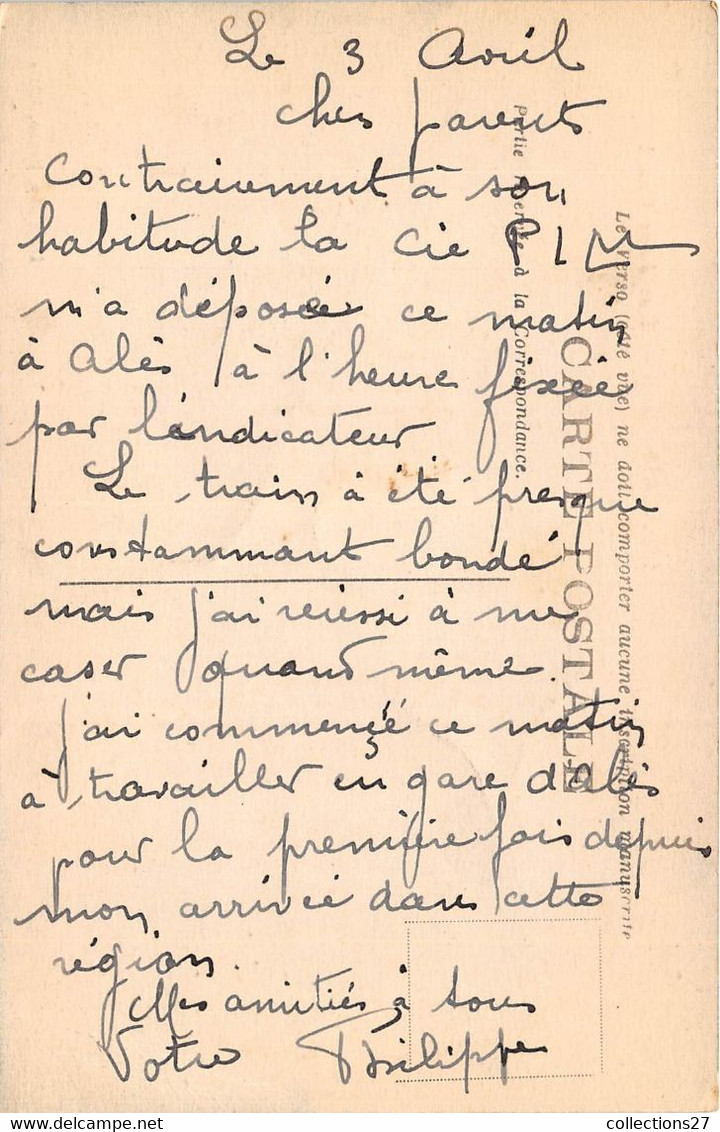 Le 3 Avril
chers parents
contrairement à son
habitude la Cie PLM
m'a déposé ce matin
à Alès à l'heure fixée
par l'indicateur
Le train à été presque
constammant bondé
mais j'ai reussi à me
caser quand même.
j'ai commencé ce matin
à travailler en gare d'Alès
pour la première fois depuis
mon arrivée dans cette
région.
Mes amitiés à tous
Votre Philippe
CARTE POSTALE
Le Verso (côté vue) ne doit comporter aucune inscription manuscrite
Partie réservée à la Correspondance.
collections27